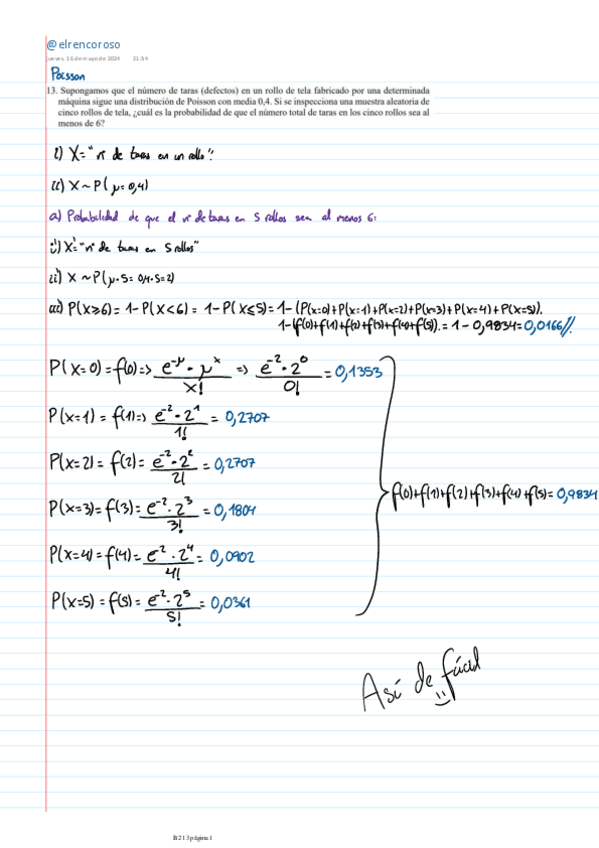 @elrencoroso
jueves, 16 de mayo de 2024 21:34
Poisson
13. Supongamos que el número de taras (defectos) en un rollo de tela fabricado por una determinada
máquina sigue una distribución de Poisson con media 0,4. Si se inspecciona una muestra aleatoria de
cinco rollos de tela, ¿cuál es la probabilidad de que el número total de taras en los cinco rollos sea al
menos de 6?
i) X = "nº de taras en un rollo".
ii) X ~ P(μ = 0,4)
a) Probabilidad de que el nº de taras en 5 rollos sea al menos 6:
i) X' = "nº de taras en 5 rollos"
ii) X ~ P(μ·5 = 0,4·5 = 2)
iii) P(X≥6) = 1 - P(X<6) = 1 - P(X≤5) = 1 - (P(x=0) + P(x=1) + P(x=2) + P(x=3) + P(x=4) + P(x=5)).
1 - (f(0) + f(1) + f(2) + f(3) + f(4) + f(5)). = 1 - 0,9834 = 0,0166//.
P(x=0) = f(0) => e^-μ · μ^x / x! => e^-2 · 2^0 / 0! = 0,1353
P(x=1) = f(1) => e^-2 · 2^1 / 1! = 0,2707
P(x=2) = f(2) = e^-2 · 2^2 / 2! = 0,2707
f(0) + f(1) + f(2) + f(3) + f(4) + f(5) = 0,9834
P(x=3) = f(3) = e^-2 · 2^3 / 3! = 0,1804
P(x=4) = f(4) = e^-2 · 2^4 / 4! = 0,0902
P(x=5) = f(5) = e^-2 · 2^5 / 5! = 0,0361
Así de fácil
Bi213 página 1